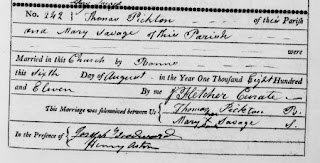 No. 242 } Thomas Pickton of this Parish
and Mary Savage of this Parish
were
Married in this Church by Banns
this Sixth Day of August in the Year One Thousand Eight Hundred
and Eleven By me J Fletcher Curate
This Marriage was solemnized between Us { Thomas Pickton
Mary Savage
In the Presence of { Joseph Woodward
Henry Aston